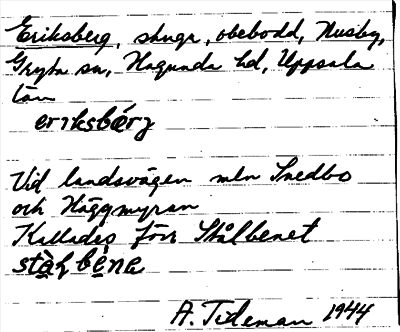 Eriksberg, stuga, obebodd, Husby,
Gryta sn, Hagunda hd, Uppsala
län
eriksbérj
Vid landsvägen mln Snedbo
och Häggmyran
Kallades förr Stålbenet
stàlbèna
A. Tideman 1944